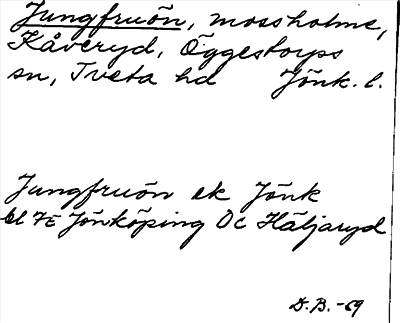 Jungfruön, mossholme,
Kåveryd, Öggestorps
sn, Tveta hd Jönk. l.
Jungfruön ek Jönk
bl 7E Jönköping Öc Häljaryd
D.B.-69